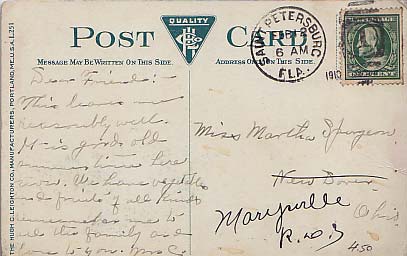 POST CARD
QUALITY
MESSAGE MAY BE WRITTEN ON THIS SIDE.
ADDRESS ON THIS SIDE.
THE HUGH C. LEIGHTON CO., MANUFACTURERS, PORTLAND, ME., U.S.A.
SAINT PETERSBURG
6 AM
FLA.
1910
Dear Friend:-
This leaves me
reasonably well.
It is good old
summer time here
now. We have vegetables
and fruits of all kinds
remember me to
all the family and
love to you. Mrs C.
Miss Martha Spurgeon
New Dover
Marysville Ohio.
R.D.
4.50